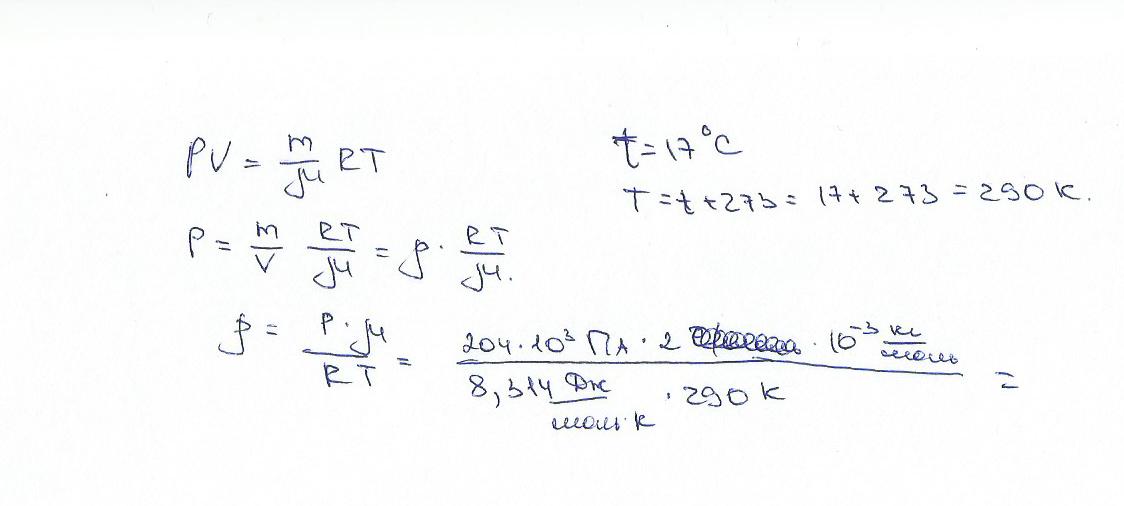 PV = m/μ RT
t = 17°C
T = t + 273 = 17 + 273 = 290 К.
P = m/V RT/μ = ρ · RT/μ.
ρ = P · μ / RT = 204 · 10³ Па · 2 · 10⁻³ кг/моль / 8,314 Дж/моль·К · 290 К =